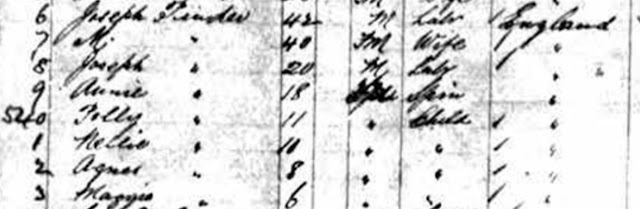 6 Joseph Pinder 42 M Lab 1 England
7 M. " 40 M Wife "
8 Joseph " 20 M Lab 1 " "
9 Annie " 18 Spin "
5240 Polly " 11 " Child 1 "
1 Nellie " 10 " " 1 "
2 Agnes " 8 " " 1 "
3 Maggie " 6 " " 1 "